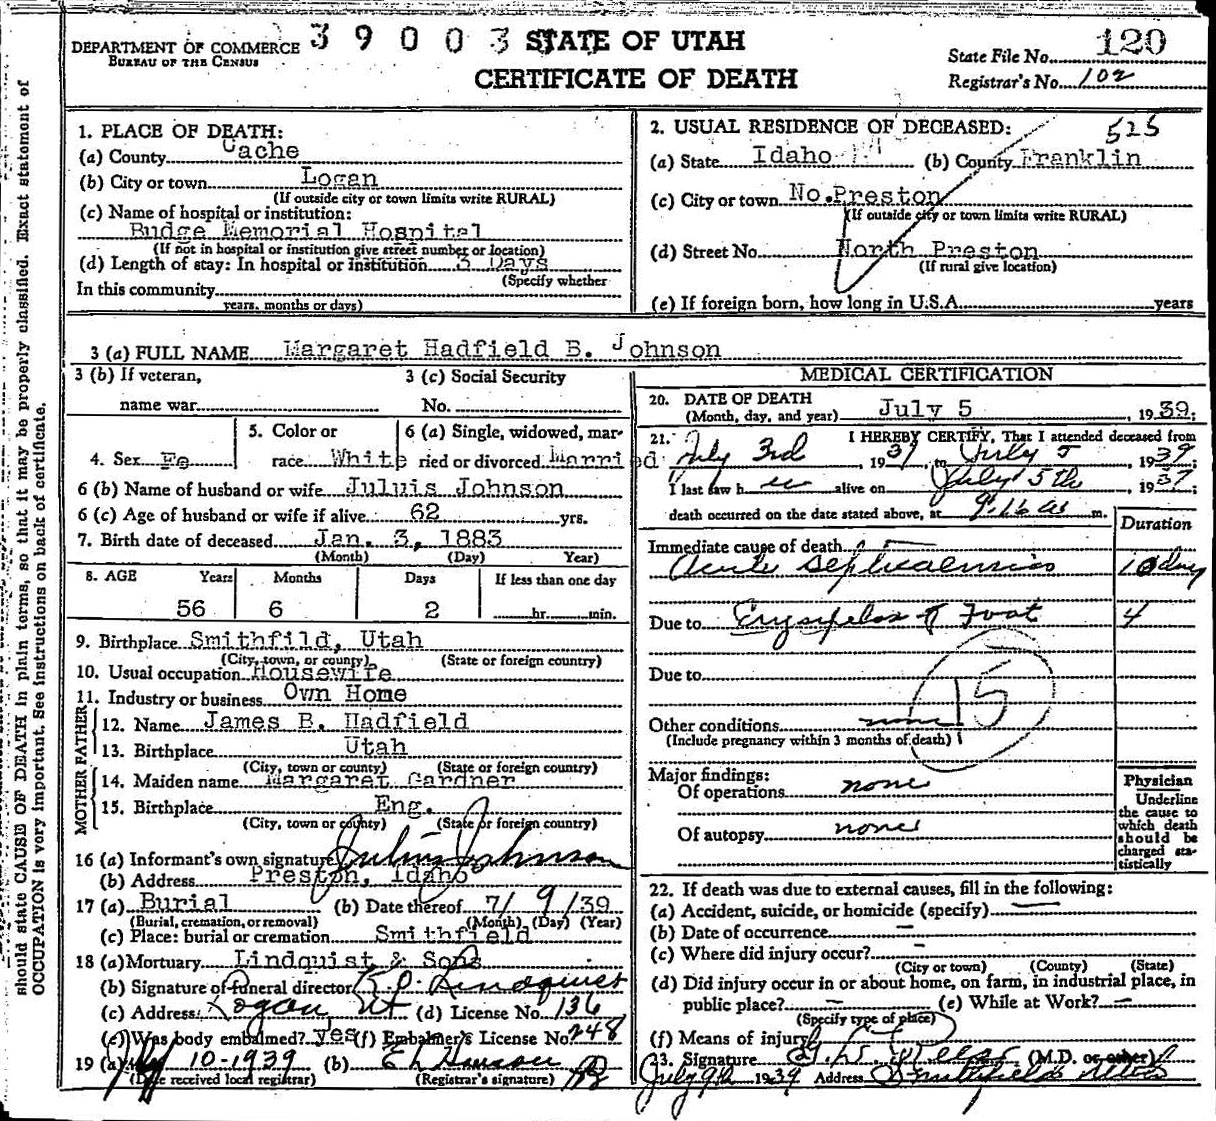 DEPARTMENT OF COMMERCE 3 9 0 0 3 STATE OF UTAH State File No. 120
BUREAU OF THE CENSUS CERTIFICATE OF DEATH Registrar's No. 102
should state CAUSE OF DEATH in plain terms, so that it may be properly classified. Exact statement of
OCCUPATION is very important. See instructions on back of certificate.
1. PLACE OF DEATH:
(a) County Cache
(b) City or town Logan
(If outside city or town limits write RURAL)
(c) Name of hospital or institution:
Budge Memorial Hospital
(If not in hospital or institution give street number or location)
(d) Length of stay: In hospital or institution 3 Days
(Specify whether
In this community
years, months or days)
2. USUAL RESIDENCE OF DECEASED: 525
(a) State Idaho (b) County Franklin
(c) City or town No. Preston
(If outside city or town limits write RURAL)
(d) Street No. North Preston
(If rural give location)
(e) If foreign born, how long in U.S.A. years
3 (a) FULL NAME Margaret Hadfield B. Johnson
3 (b) If veteran, 3 (c) Social Security
name war No.
4. Sex Fe 5. Color or race White 6 (a) Single, widowed, married or divorced Married
6 (b) Name of husband or wife Juluis Johnson
6 (c) Age of husband or wife if alive 62 yrs.
7. Birth date of deceased Jan. 3, 1883
(Month) (Day) Year)
8. AGE Years Months Days If less than one day
56 6 2 hr. min.
9. Birthplace Smithfild, Utah
(City, town, or county) (State or foreign country)
10. Usual occupation Housewife
11. Industry or business Own Home
MOTHER FATHER
12. Name James B. Hadfield
13. Birthplace Utah
(City, town or county) (State or foreign country)
14. Maiden name Margaret Gardner
15. Birthplace Eng.
(City, town or county) (State or foreign country)
16 (a) Informant's own signature Julius Johnson
(b) Address Preston, Idaho
17 (a) Burial (b) Date thereof 7/ 9 /39
(Burial, cremation, or removal) (Month) (Day) (Year)
(c) Place: burial or cremation Smithfield
18 (a) Mortuary Lindquist & Sons
(b) Signature of funeral director Lindquist
(c) Address Logan, Ut (d) License No. 136
(e) Was body embalmed? Yes (f) Embalmer's License No. 248
19 (a) July 10-1939 (b)
(Date received local registrar) (Registrar's signature)
MEDICAL CERTIFICATION
20. DATE OF DEATH
(Month, day, and year) July 5, 1939;
21. I HEREBY CERTIFY, That I attended deceased from
July 3rd, 1939 to July 5, 1939
I last saw her alive on July 5th, 1939;
death occurred on the date stated above, at 9:16 a m.
Duration
Immediate cause of death
Acute Septicaemia 10 days
Due to Erysipelas of Foot 4
Due to
15
Other conditions none
(Include pregnancy within 3 months of death)
Major findings:
Of operations none
Of autopsy none
Physician
Underline
the cause to
which death
should be
charged sta-
tistically
22. If death was due to external causes, fill in the following:
(a) Accident, suicide, or homicide (specify) —
(b) Date of occurrence —
(c) Where did injury occur? —
(City or town) (County) (State)
(d) Did injury occur in or about home, on farm, in industrial place, in
public place? — (e) While at Work? —
(Specify type of place)
(f) Means of injury
23. Signature (M.D. or other)
July 9th 1939 Address Smithfield Utah